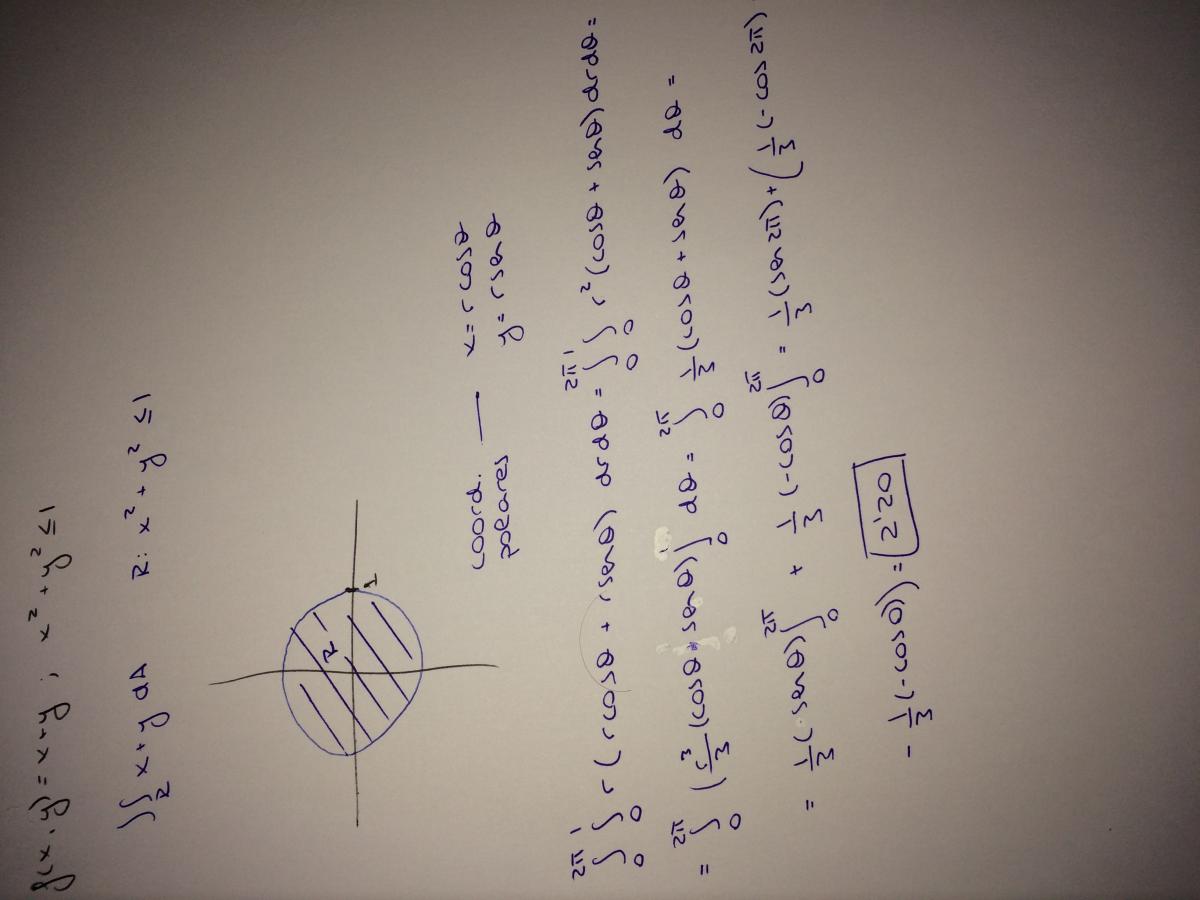 f(x,y) = x+y ; x² + y² ≤ 1
∬_R x+y dA R: x² + y² ≤ 1
R
1
coord. polares — x = r cosθ
y = r senθ
∫₀^{2π} ∫₀^1 r (r cosθ + r senθ) dr dθ = ∫₀^{2π} ∫₀^1 r² (cosθ + senθ) dr dθ =
= ∫₀^{2π} (r³/3 (cosθ + senθ)]₀^1 dθ = ∫₀^{2π} 1/3 (cosθ + senθ) dθ =
= 1/3 (senθ)]₀^{2π} + 1/3 (-cosθ)]₀^{2π} = 1/3 (sen 2π) + (1/3 (-cos 2π)
- 1/3 (-cos 0)) = 2'20